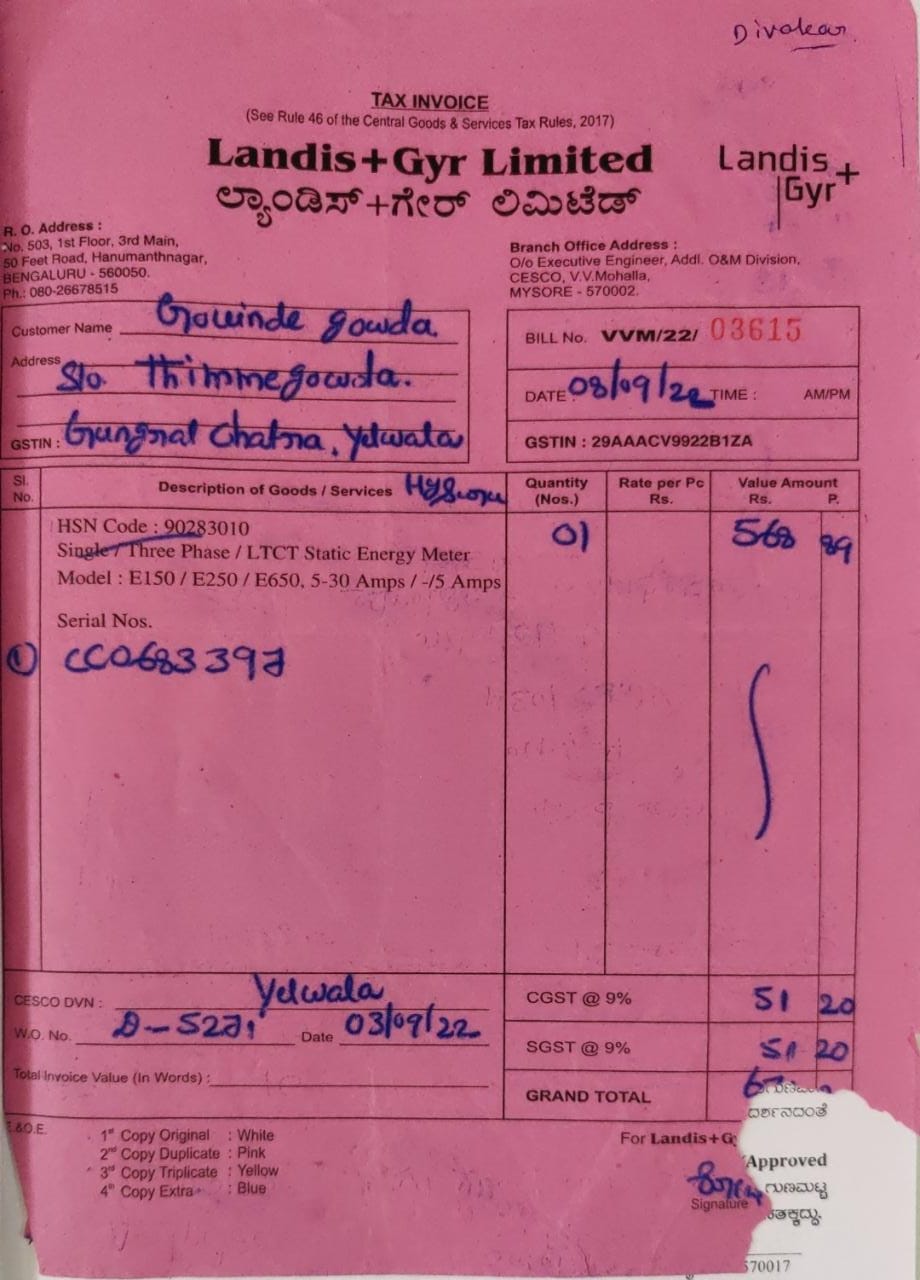 Divakar
TAX INVOICE
(See Rule 46 of the Central Goods & Services Tax Rules, 2017)
Landis+Gyr Limited
Landis+
Gyr
ಲ್ಯಾಂಡಿಸ್+ಗೇರ್ ಲಿಮಿಟೆಡ್
R. O. Address :
No. 503, 1st Floor, 3rd Main,
50 Feet Road, Hanumanthnagar,
BENGALURU - 560050.
Ph.: 080-26678515
Branch Office Address :
O/o Executive Engineer, Addl. O&M Division,
CESCO, V.V.Mohalla,
MYSORE - 570002.
Customer Name Govinde gowda
Address S/o. Thimmegowda.
GSTIN : Yelwala
BILL No. VVM/22/ 03615
DATE 03/09/22 TIME : AM/PM
GSTIN : 29AAACV9922B1ZA
Sl. No. Description of Goods / Services Quantity (Nos.) Rate per Pc Rs. Value Amount Rs. P.
HSN Code : 90283010 01 568 89
Single / Three Phase / LTCT Static Energy Meter
Model : E150 / E250 / E650, 5-30 Amps / -/5 Amps
Serial Nos.
① CC0683397
CESCO DVN : Yelwala
CGST @ 9% 51 20
W.O. No. Date 03/09/22
SGST @ 9% 51 20
Total Invoice Value (In Words) :
GRAND TOTAL
ದರ್ಶನದಂತೆ
E.&O.E.
1st Copy Original : White
2nd Copy Duplicate : Pink
3rd Copy Triplicate : Yellow
4th Copy Extra : Blue
For Landis+G
Approved
ಗುಣಮಟ್ಟ
Signature
570017